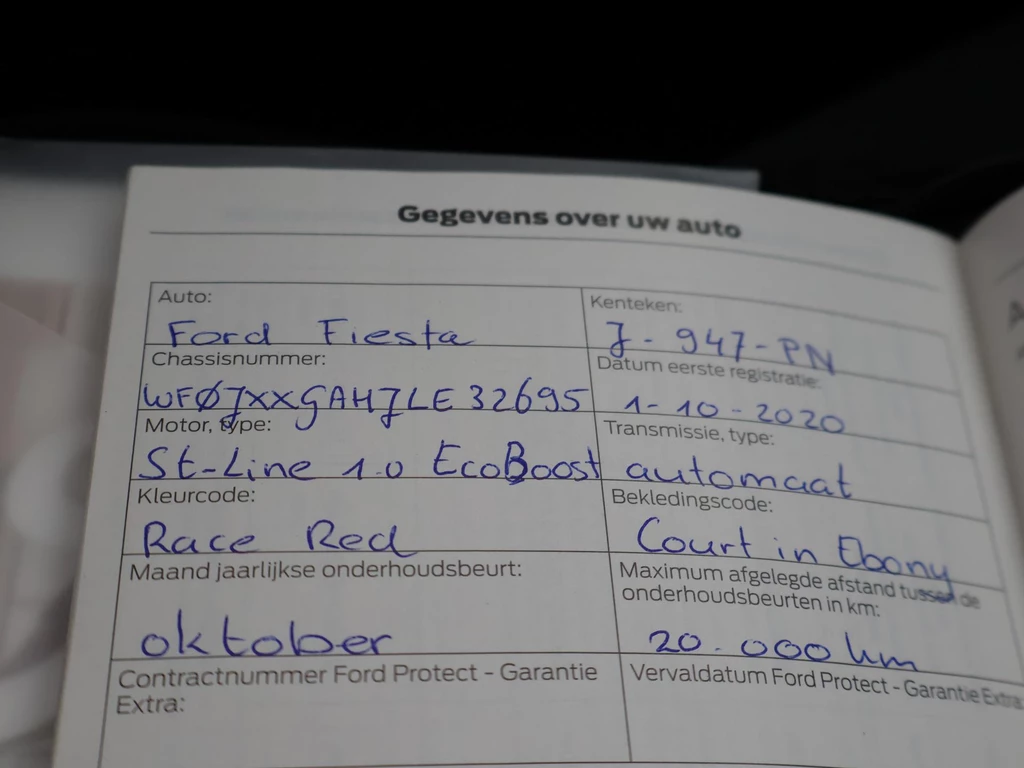 Gegevens over uw auto
Auto:
Ford Fiesta
Kenteken:
J-947-PN
Chassisnummer:
WFØJXXGAHJLE32695
Datum eerste registratie:
1-10-2020
Motor, type:
St-Line 1.0 EcoBoost
Transmissie, type:
automaat
Kleurcode:
Race Red
Bekledingscode:
Court in Ebony
Maand jaarlijkse onderhoudsbeurt:
oktober
Maximum afgelegde afstand tussen de
onderhoudsbeurten in km:
20.000 km
Contractnummer Ford Protect - Garantie
Extra:
Vervaldatum Ford Protect - Garantie Extra: